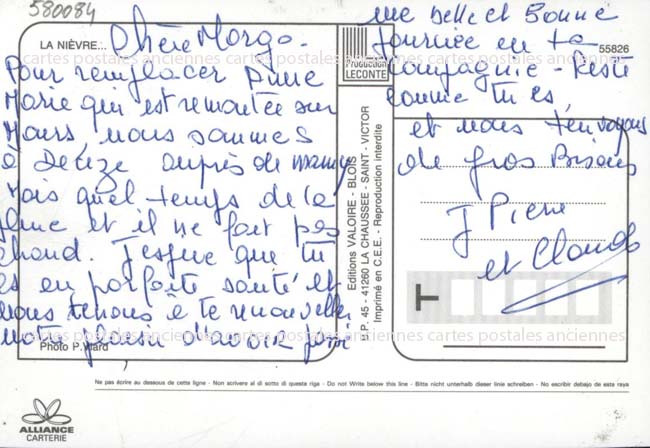 580084
LA NIÈVRE...
Chère Margo.
Pour remplacer Anne
Marie qui est remontée sur
Mars, nous sommes
à Decize auprès de mamy
Mais quel temps de la
pluie et il ne fait pas
chaud. J'espère que tu
es en parfaite santé et
nous tenons à te renouveller
notre plaisir d'avoir passé
une belle et Bonne
journée en ta
compagnie - Reste
comme tu es,
et nous t'envoyons
de gros Bisous
J Pierre
et Claude
Production
LECONTE
55826
Editions VALOIRE - BLOIS
B.P. 45 - 41260 LA CHAUSSEE - SAINT - VICTOR
Imprimé en C.E.E. - Reproduction interdite
Photo P. Viard
Ne pas écrire au dessous de cette ligne - Non scrivere al di sotto di questa riga - Do not Write below this line - Bitte nicht unterhalb dieser linie schreiben - No escribir debajo de esta raya
ALLIANCE
CARTERIE
cartes postales anciennes cartes postales anciennes cartes postales anciennes
cartes postales anciennes cartes postales anciennes cartes postales anciennes
cartes postales anciennes cartes postales anciennes cartes postales anciennes